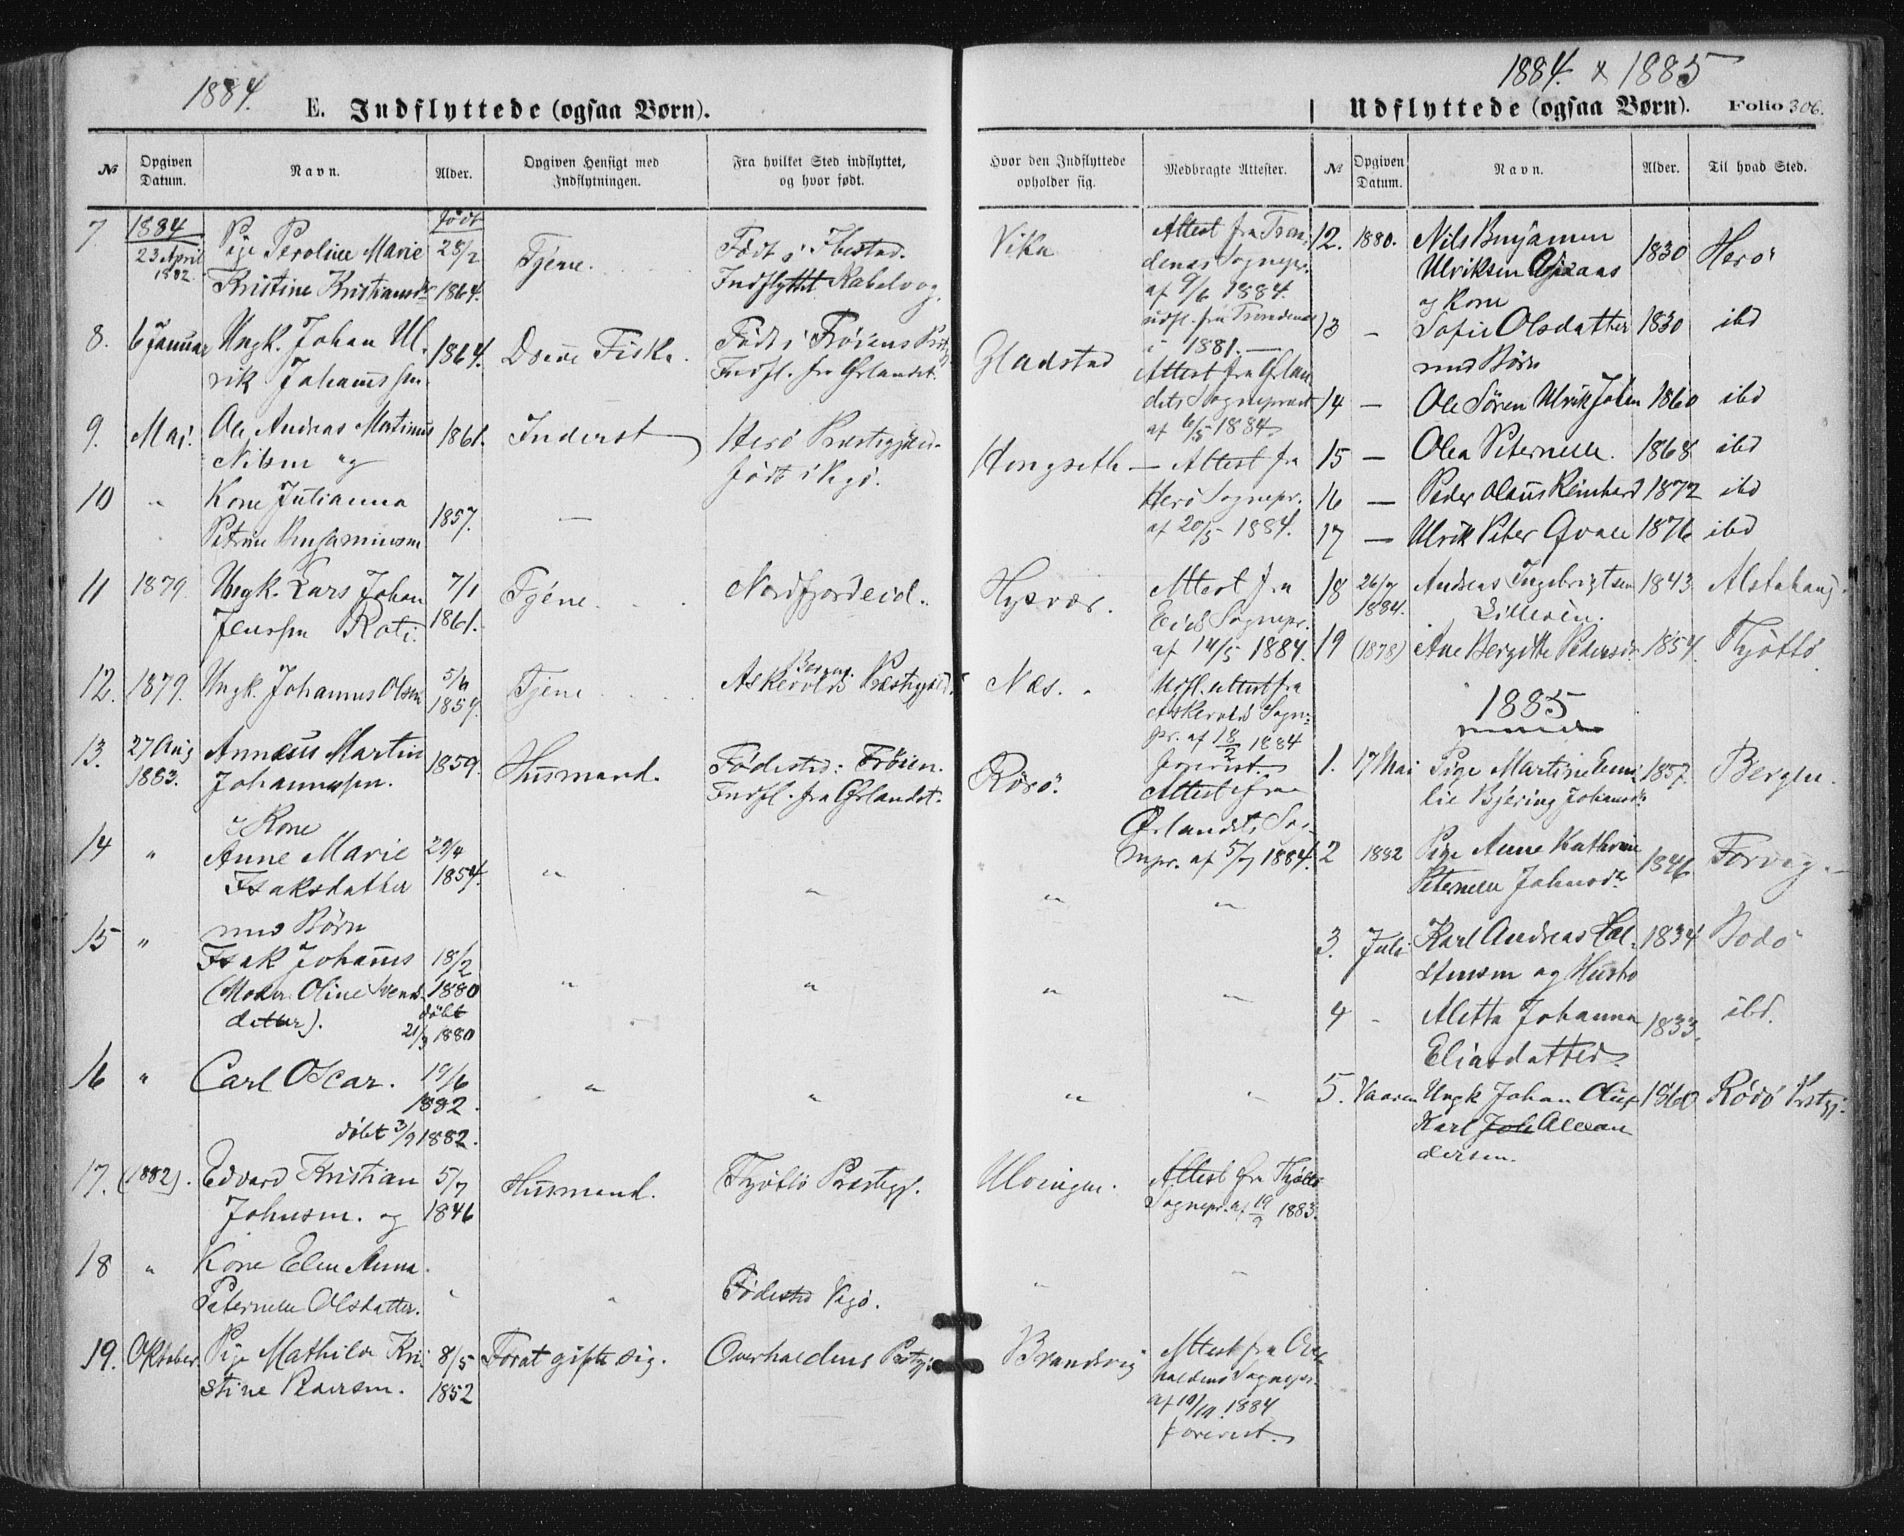 1884.
E. Indflyttede (ogsaa Børn).
№ | Opgiven Datum. | Navn. | Alder. | Opgiven Hensigt med Indflytningen. | Fra hvilket Sted indflyttet, og hvor født. | Hvor den Indflyttede opholder sig. | Medbragte Attester.
7. | 1884 23 April 1882. | Pige Peroline Marie Kristine | født 28/2 1864. | Tjene. | Født i Ibestad. Indflyttet | Vika | Attest fra Tron-denæs Sognepr. af 9/6 1884. udfl. fra Trondenæs i 1881.
8. | 6 Januar | Ungk. Johan Ul-rik Johanssen | 1864. | Fiske. | Født i Frøiens Prstgj. Indfl. fra Ørlandet. | Gladstad | Attest fra Ørlan-dets Sogneprest af 6/5 1884.
9. | Maj. | Ole Andreas Martinus Nilsen og | 1861. | Inderst | Herø Præstegjæld. født i Vegø. | Hongseth | Attest fra Herø Sognepr. af 20/5 1884.
10 | " | Kone Julianna Petrine Benjaminsen | 1857. | —
11 | 1879. | Ungk. Lars Johan Jenssen | 7/1 1861. | Tjene. | Nordfjordeid. | Hysvær. | Attest fra Eids Sognepr. af 14/5 1884.
12. | 1879. | Ungk. Johannes Olsen | 5/6 1859. | Tjene | Askevolds Præstegjæld | Næs. | Udfl. attest fra Askevolds Sogn-pr. af 18/2 1884 foreviist.
13. | 27 Aug 1883. | Annæus Martin Johannessen. | 1859. | Husmand. | Fødested: Frøien. Indfl. fra Ørlandet. | Rørø. | Attest fra Ørlandets So-gnepr. af 5/7 1884.
14 | " | og Kone Anne Marie Isaksdatter | 29/4 1854. | " | " | " | "
15 | " | med Børn Isak Johannes (Moder Oline Svends-datter). | 18/2 1880 døbt 21/3 1880 | " | " | " | "
16 | " | Carl Oscar. | 19/6 1882. døbt 3/9 1882. | " | " | " | "
17. | (1882). | Edvard Kristian Johnsen. og | 5/7 1846 | Husmand. | Tjøttø Præstegj. | Ulvingen. | Attest fra Tjøttø Sognepr. af 19/9 1883.
18 | " | Kone Elen Anna Peternelle Olsdatter. | " | " | Fødested Vegø. | " | "
19. | Oktober | Pige Mathilde Kri-stine Pedersen. | 8/5 1852 | For at gifte sig. | Overhaldens Prstgj. | Brandsvig | Attest fra Over-haldens Sognepr. af 10/10. 1884 forevist.
1884. & 1885
Udflyttede (ogsaa Børn). Folio 306.
№ | Opgiven Datum. | Navn. | Alder. | Til hvad Sted.
12. | 1880. | Nils Benjamin Ulriksen | 1830 | Herø
13 | — | og Kone Sofie Olsdatter | 1830 | ibd
14 | — | med Børn Ole Søren Ulrik Johan | 1860 | ibd
15 | — | Olea Peternelle. | 1868 | ibd
16 | — | Peder Olaus Reinhard | 1872 | ibd
17 | — | Ulrik Peter | 1876 | ibd
18 | 26/7 1884. | Andreas Ingebrigtsen | 1843 | Alstahaug.
19 | (1878) | Ane Bergitte Pedersdr. | 1854. | Tjøttø
1885
1. | 17 Mai | Pige Martine Emi-lie Bjering Johansdr. | 1857. | Bergen.
2 | 1882 | Pige Anne Kathrine Peternelle Johnsdr. | 1846 | Torvig.
3. | Juli | Karl Andreas og Hustr | 1834 | Bodø
4 | - | Aletta Johanna Eliasdatter | 1833. | ibd.
5. | Vaaren | Ungk Johan Aug Karl Joh Alexan-dersen. | 1860 | Rødø Prstgj.